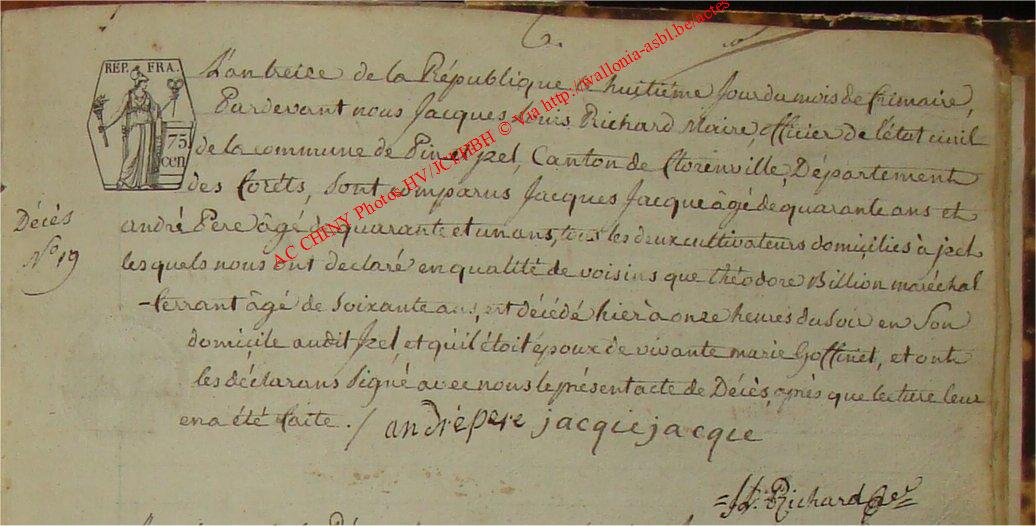 6.
REP. FRA.
75
cen
L'an treize de la République le huitième jour du mois de frimaire,
Pardevant nous Jacques Louis Richard Maire, officier de l'état civil
de la commune de Pin et jzel, Canton de florenville, Département
des forêts, sont comparus Jacques Jacque âgé de quarante ans et
andré Pere âgé de quarante et un ans, tous les deux cultivateurs domiciliés à jzel
lesquels nous ont declaré en qualité de voisins que théodore Billion maréchal
ferrant âgé de soixante ans, est décédé hier à onze heures du soir en son
domicile audit Jzel, et qu'il étoit époux de vivante marie Goffinet, et ont
les déclarans signé avec nous le présent acte de Décès, après que lecture leur
en a été faite. /
Décès
N° 19
andrépere jacquejacque
Richard
AC CHINY Photos HV/JCPHBH © Via http://wallonia-asbl.be/actes